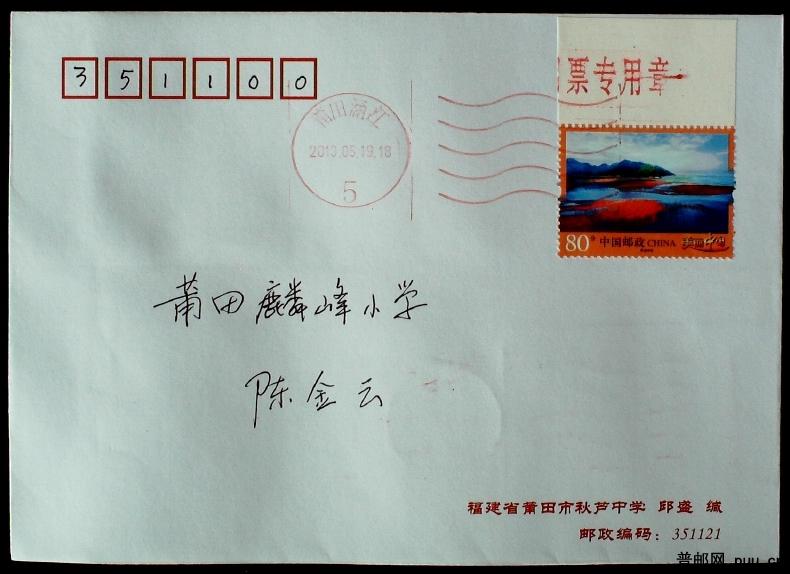 351100
票专用章
莆田涵江
2013.05.19.18
5
80分 中国邮政 CHINA 美丽中国
莆田麟峰小学
陈金云
福建省莆田市秋芦中学 邱盛 缄
邮政编码：351121
普邮网 puu.c